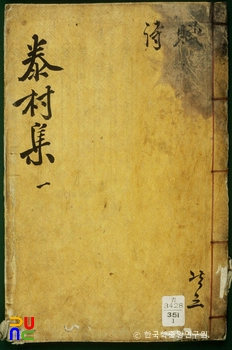 泰村集
一
詩
共三
3428
351
1
PUNG
© 한국학중앙연구원